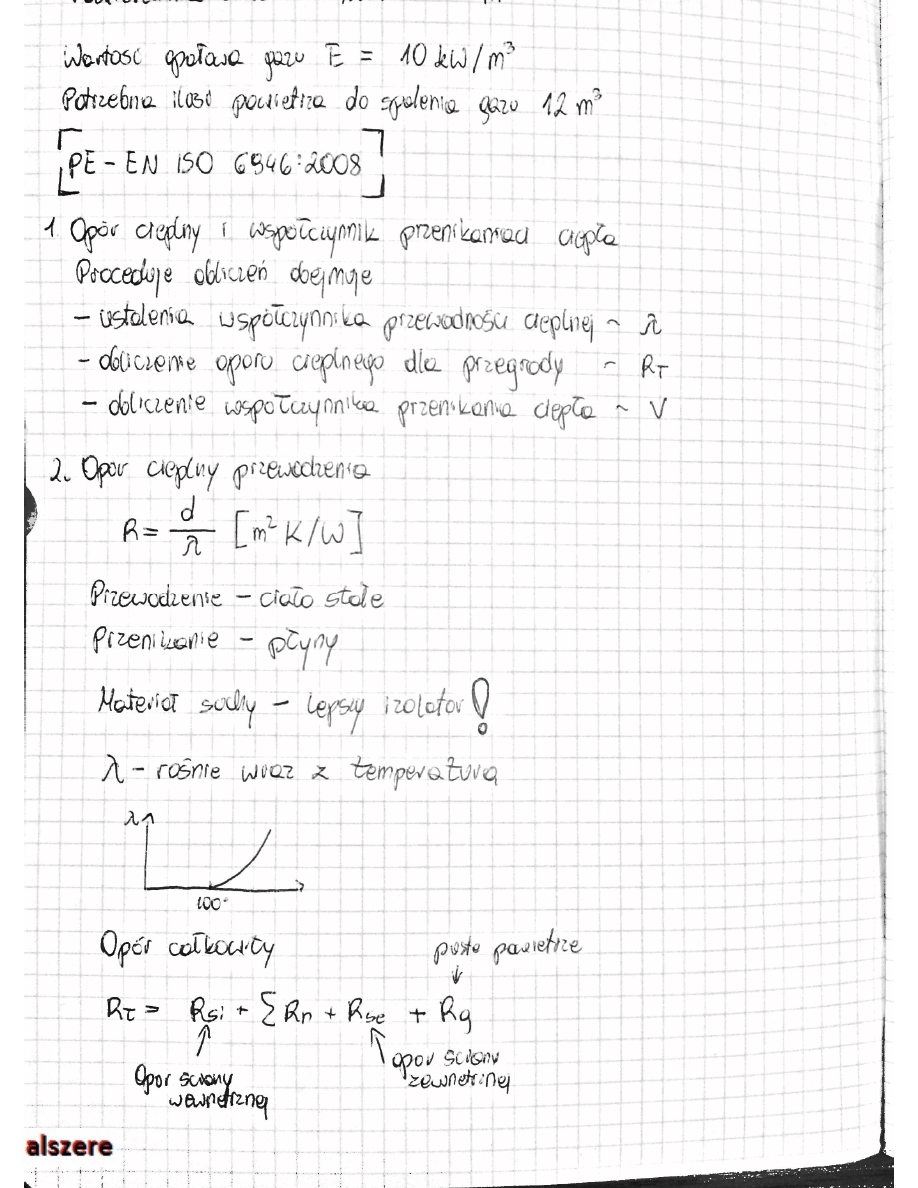 Wartość opałowa gazu E = 10 kW/m³
Potrzebna ilość powietrza do spalenia gazu 12 m³
[PE - EN ISO 6946:2008]
1. Opór cieplny i współczynnik przenikaniaci ciepła
Proceduje obliczeń obejmuje
- ustalenia współczynnika przewodności cieplnej ~ λ
- obliczenie oporu cieplnego dla przegrody ~ R_T
- obliczenie współczynnika przenikania ciepła ~ V
2. Opór cieplny przewodzenia
R = d/λ [m² K/W]
Przewodzenie - ciało stałe
Przenikanie - płyny
Materiał suchy - lepszy izolator!
λ - rośnie wraz z temperaturą
λ
100°
Opór całkowity
puste powietrze
R_T = R_si + Σ R_n + R_se + R_g
opór ściany
zewnetrznej
Opór ściany
wewnetrznej
alszere